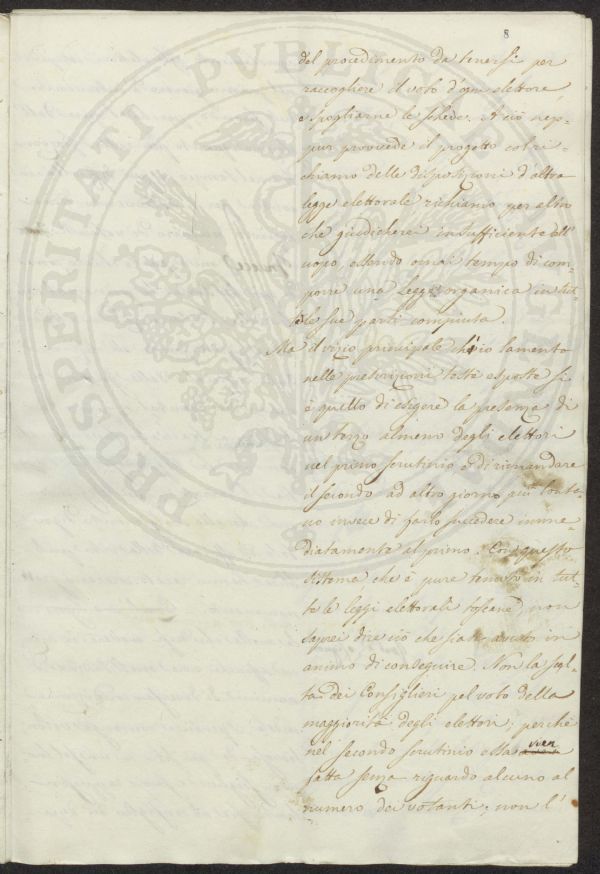 8
del procedimento da tenersi per
raccogliere il voto d'ogni elettore,
e spogliarne le schede. A ciò nep-
pur provvede il progetto col ri-
chiamo delle disposizioni d'altra
legge elettorale richiamo per altro
che giudicherei insufficiente all'
uopo, essendo omai tempo di com-
porre una Legge organica in tut-
te le sue parti compiuta.
Ma il vizio principale ch'io lamento
nelle prescrizioni testè esposte si
è quello di esigere la presenza di
un terzo almeno degli elettori
nel primo scrutinio e di rimandare
il secondo ad altro giorno più lonta-
no invece di farlo succedere imme-
diatamente al primo. Con questo
sistema che è pure tenuto in tut-
te le leggi elettorali toscane, non
saprei dire ciò che siasi avuto in
animo di conseguire. Non la scel-
ta dei Consiglieri pel voto della
maggiorità degli elettori; perchè
nel secondo scrutinio essa vien
fatta senza riguardo alcuno al
numero dei votanti; non l'
PROSPERITATI PUBLICAE